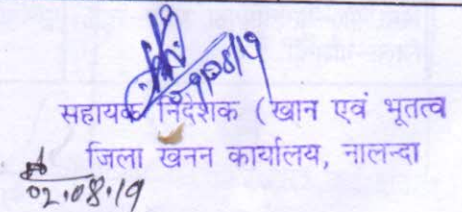 02/08/19
सहायक निदेशक (खान एवं भूतत्व
जिला खनन कार्यालय, नालन्दा
02.08.19